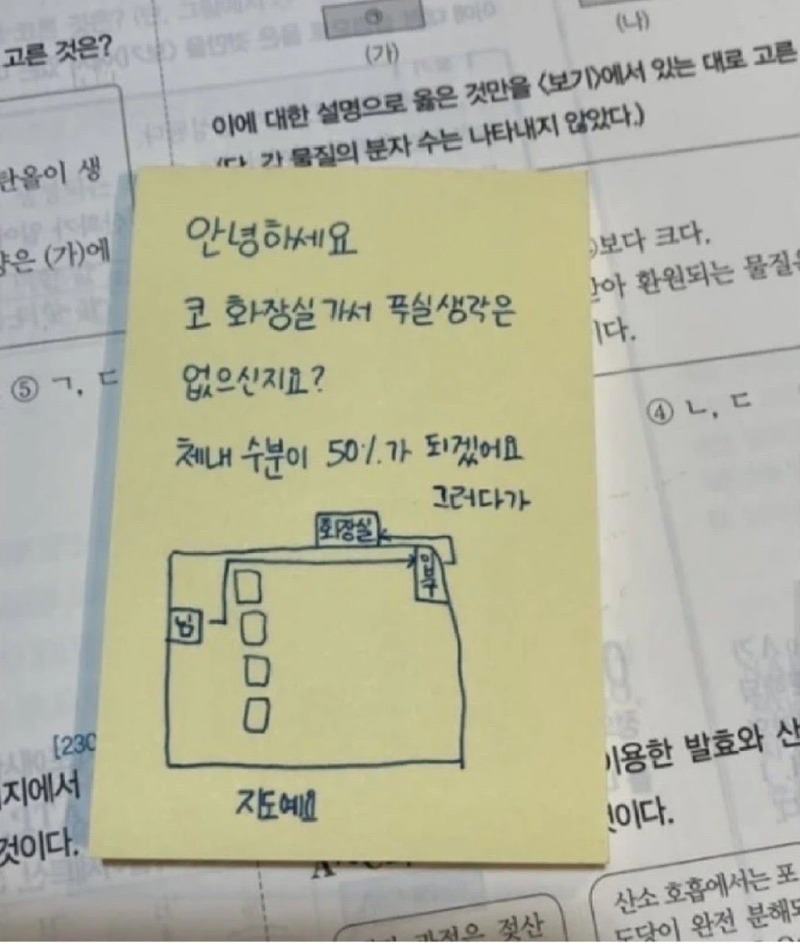 고른 것은?
(가)
(나)
이에 대한 설명으로 옳은 것만을 <보기>에서 있는 대로 고른
(단, 각 물질의 분자 수는 나타내지 않았다.)
탄올이 생
양은 (가)에
⑤ ㄱ, ㄷ
안녕하세요
코 화장실 가서 푸실생각은
없으신지요?
체내 수분이 50%가 되겠어요
그러다가
화장실
입구
님
지도예요
보다 크다.
아 환원되는 물질은
이다.
④ ㄴ, ㄷ
[230
지에서
것이다.
이용한 발효와 산
것이다.
과정은 젖산
산소 호흡에서는 포
도당이 완전 분해되